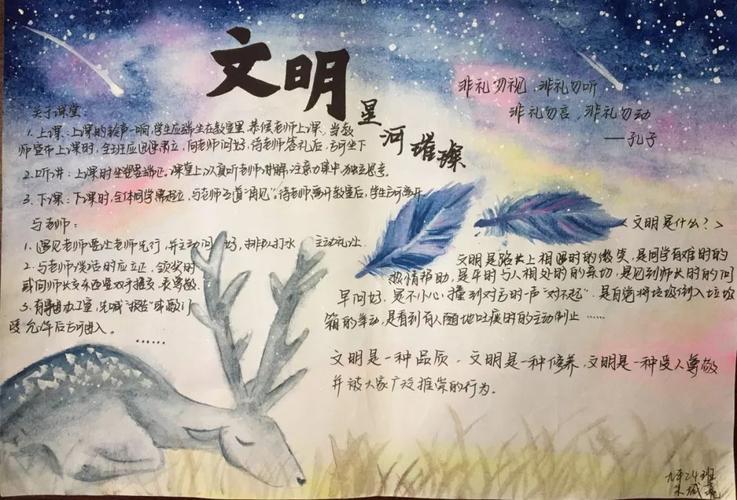 文明
星河璀璨
非礼勿视 非礼勿听
非礼勿言，非礼勿动
——孔子
关于课堂
1. 上课：上课的铃声一响，学生应端坐在教室里，恭候老师上课，当教
师宣布上课时，全班应迅速肃立，向老师问好，待老师答礼后，方可坐下
2. 听讲：上课时坐姿要端正，课堂上认真听老师讲解，注意力集中，独立思考。
3. 下课：下课时，全体同学需起立，与老师互道“再见”。待老师离开教室后，学生方可离开
与老师：
1. 遇见老师要让老师先行，并主动问好，排队打水 主动礼让
2. 与老师谈话时应立正，领奖时
或向师长交东西要双手接交，表尊敬。
3. 有事进办公室，先喊“报告”或敲门
经允许后方可进入。
……
<文明是什么？>
文明是路上相遇时的微笑，是同学有难时的
热情帮助，是平时与人相处时的亲切，是见到师长时的问
早问好，是不小心撞到对方时一声“对不起”，是自觉将垃圾倒入垃圾
箱的举动，是看到有人随地吐痰时的主动制止……
文明是一种品质，文明是一种修养，文明是一种受人尊敬
并被大家广泛推崇的行为。
班